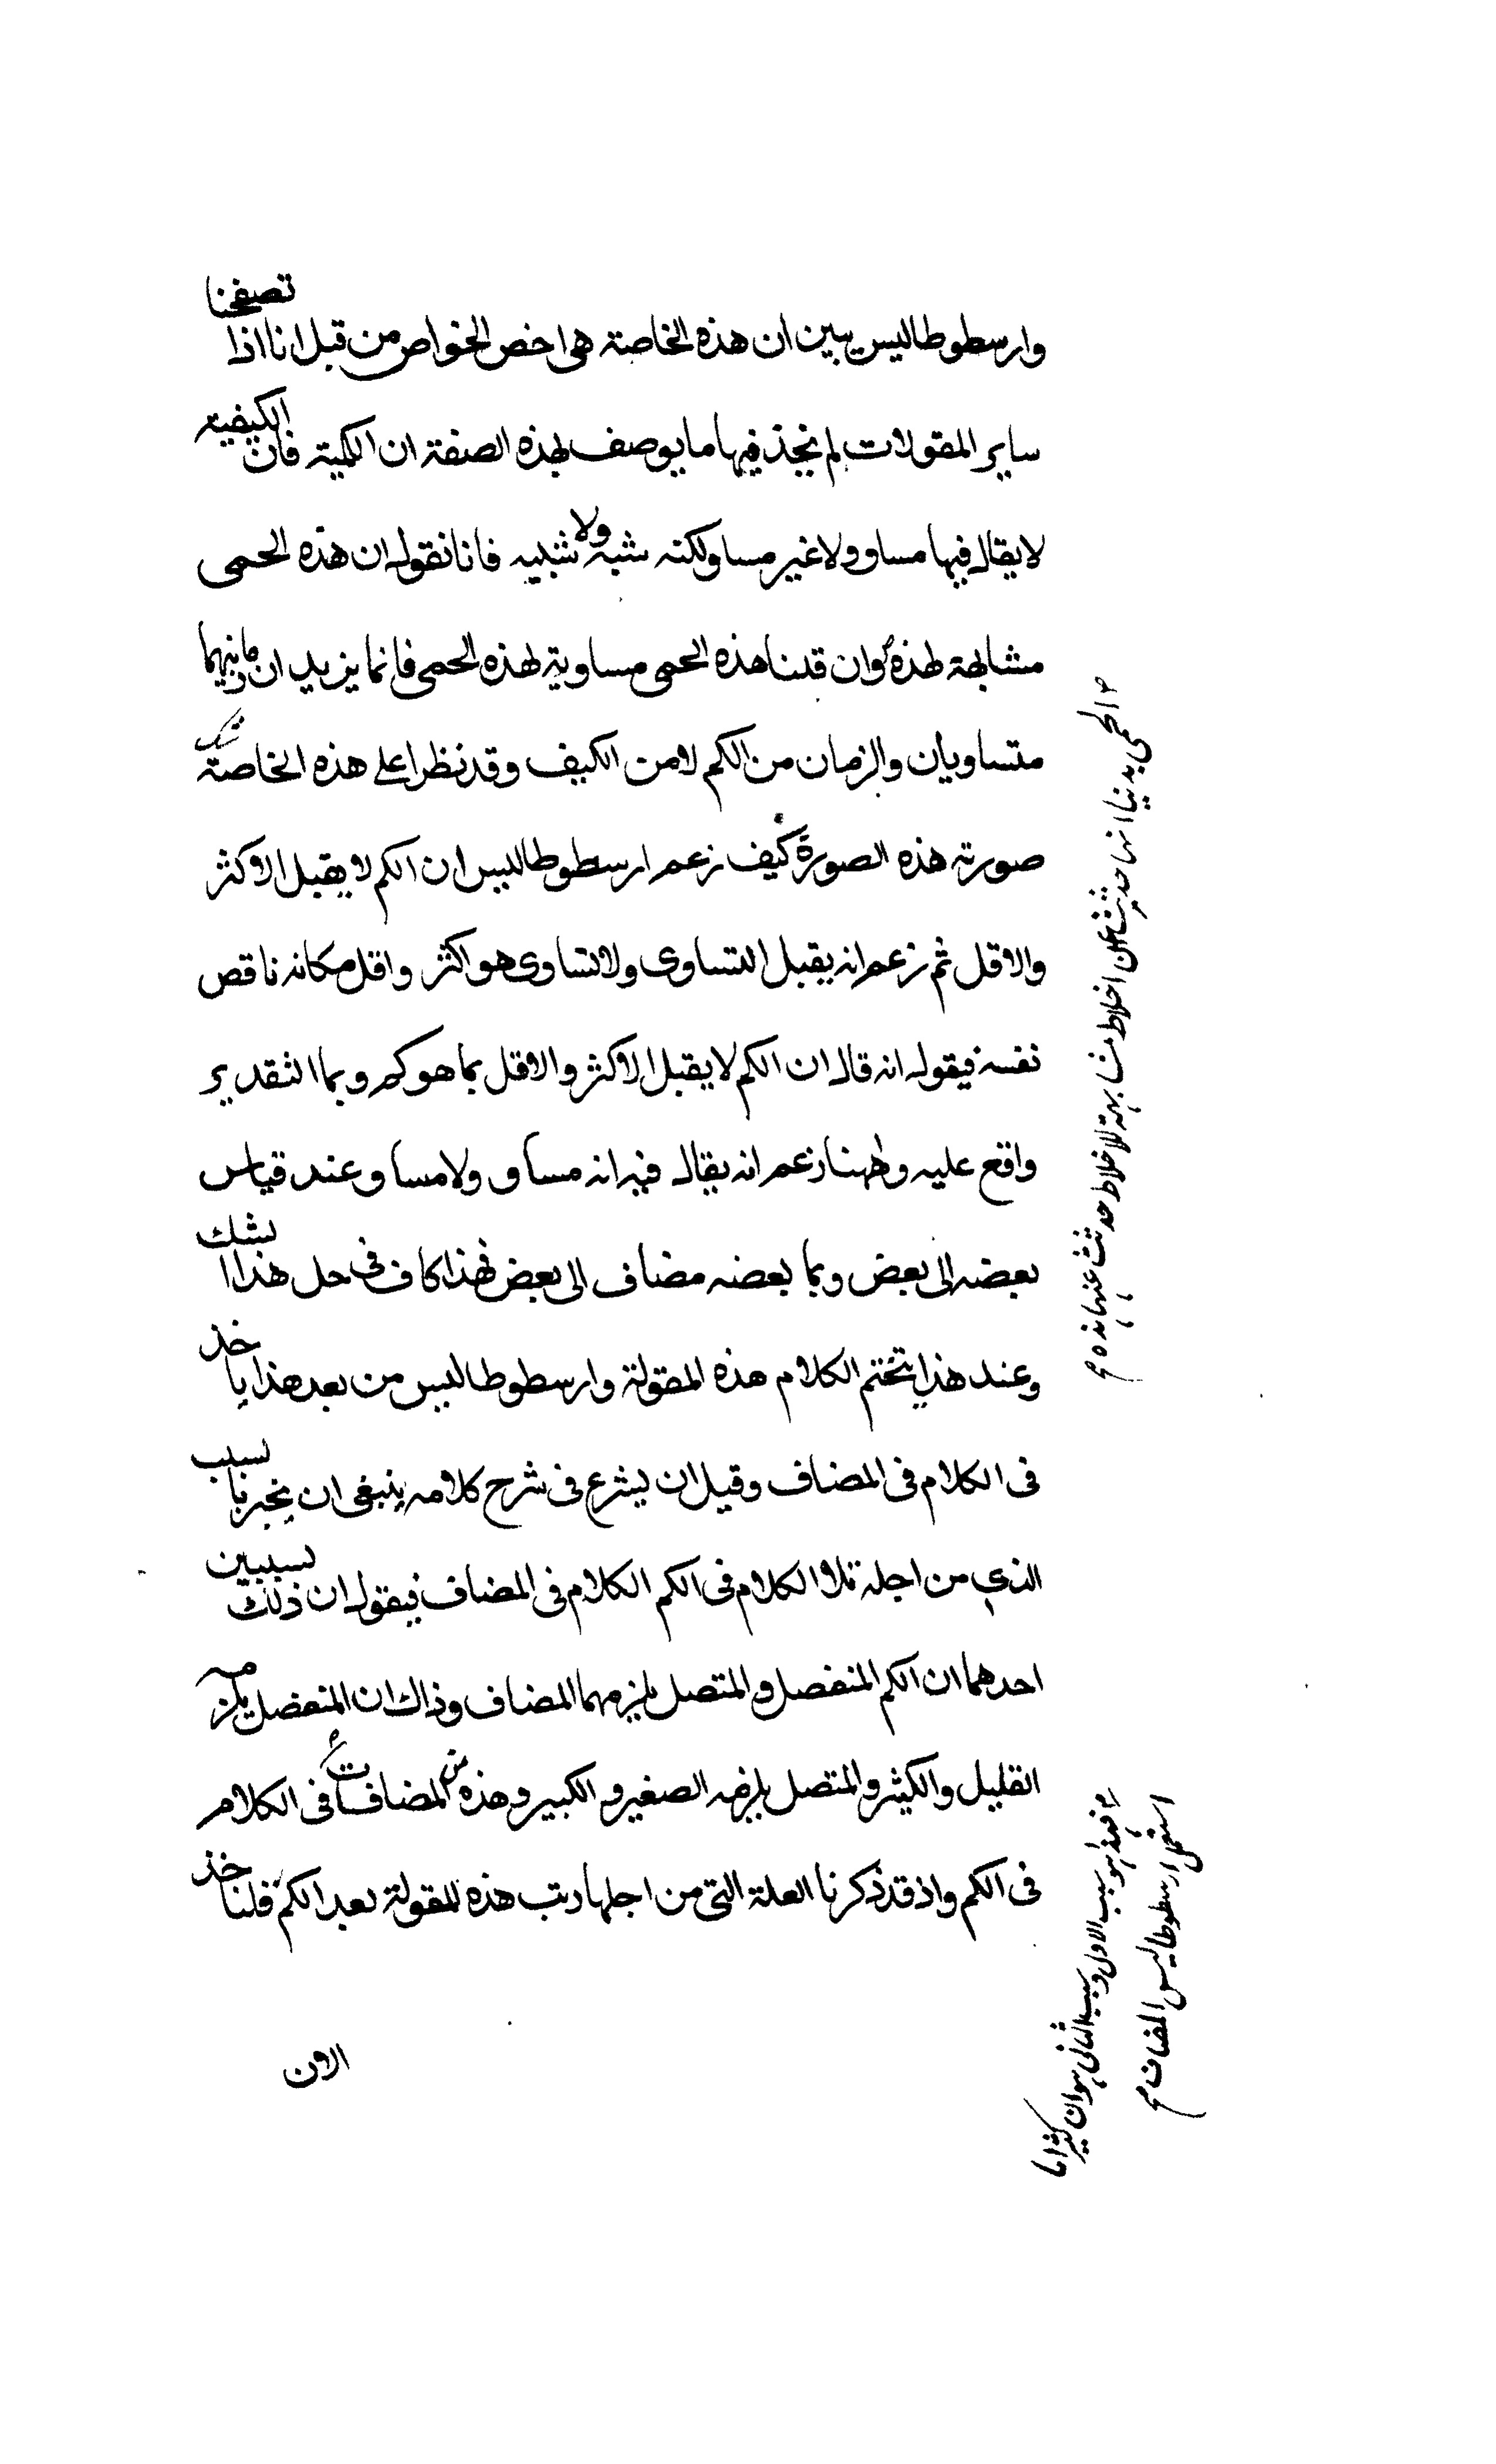 وارسطوطاليس يبين ان هذه الخاصة هى اخص الخواص من قبل انا اذا تصفحنا
ساير المقولات لم نجد فيها ما يوصف بهذه الصفة ان الكمية فان الكيفية
لا يقال فيها مساو ولا غير مساو لكنه شبه ولا شبيه فانا نقول ان هذه الحمى
مشابهة لهذه وان قلنا هذه الحمى مساوية لهذه الحمى فانما يزيد ان زمانيهما
متساويان والزمان من الكم لا من الكيف وقد نظرا على هذه الخاصة شك
صورته هذه الصورة كيف زعم ارسطوطاليس ان الكم لا يقبل الاكثر
والاقل ثم زعم انه يقبل التساوى ولا تساوى هو اكثر واقل مكانه ناقص
نفسه فيقول انه قال ان الكم لا يقبل الاكثر والاقل بما هو كم وبما التقدير
واقع عليه وههنا زعم انه يقال فيه انه مساو ولا مساو عند قياس
بعضه الى بعض وبما بعضه مضاف الى بعض فهذا كاف فى حل هذا الشك
وعند هذا يختتم الكلام هذه المقولة وارسطوطاليس من بعد هذا ياخذ
فى الكلام فى المضاف وقبل ان يشرع فى شرح كلامه ينبغى ان يخبر بالسبب
الذى من اجله تلا الكلام فى الكم الكلام فى المضاف فيقول ان ذلك لسببين
احدهما ان الكم المنفصل والمتصل يلزمهما المضاف وذاك ان المنفصل يلزمه
القليل والكثير والمتصل يلزمه الصغير والكبير وهذه من المضافات فى الكلام
فى الكم واذ قد ذكرنا العلة التى من اجلها رتب هذه المقولة بعد الكم فلناخذ
الان
الحمى يدنيا انها حدثت عن اخلاط مشابهة للاخلاط حدثت عنها هذه
فهذا هو سبب الاول وسبب الثانى هو ان كثيرا ما
استعمل ارسطوطاليس المضاف